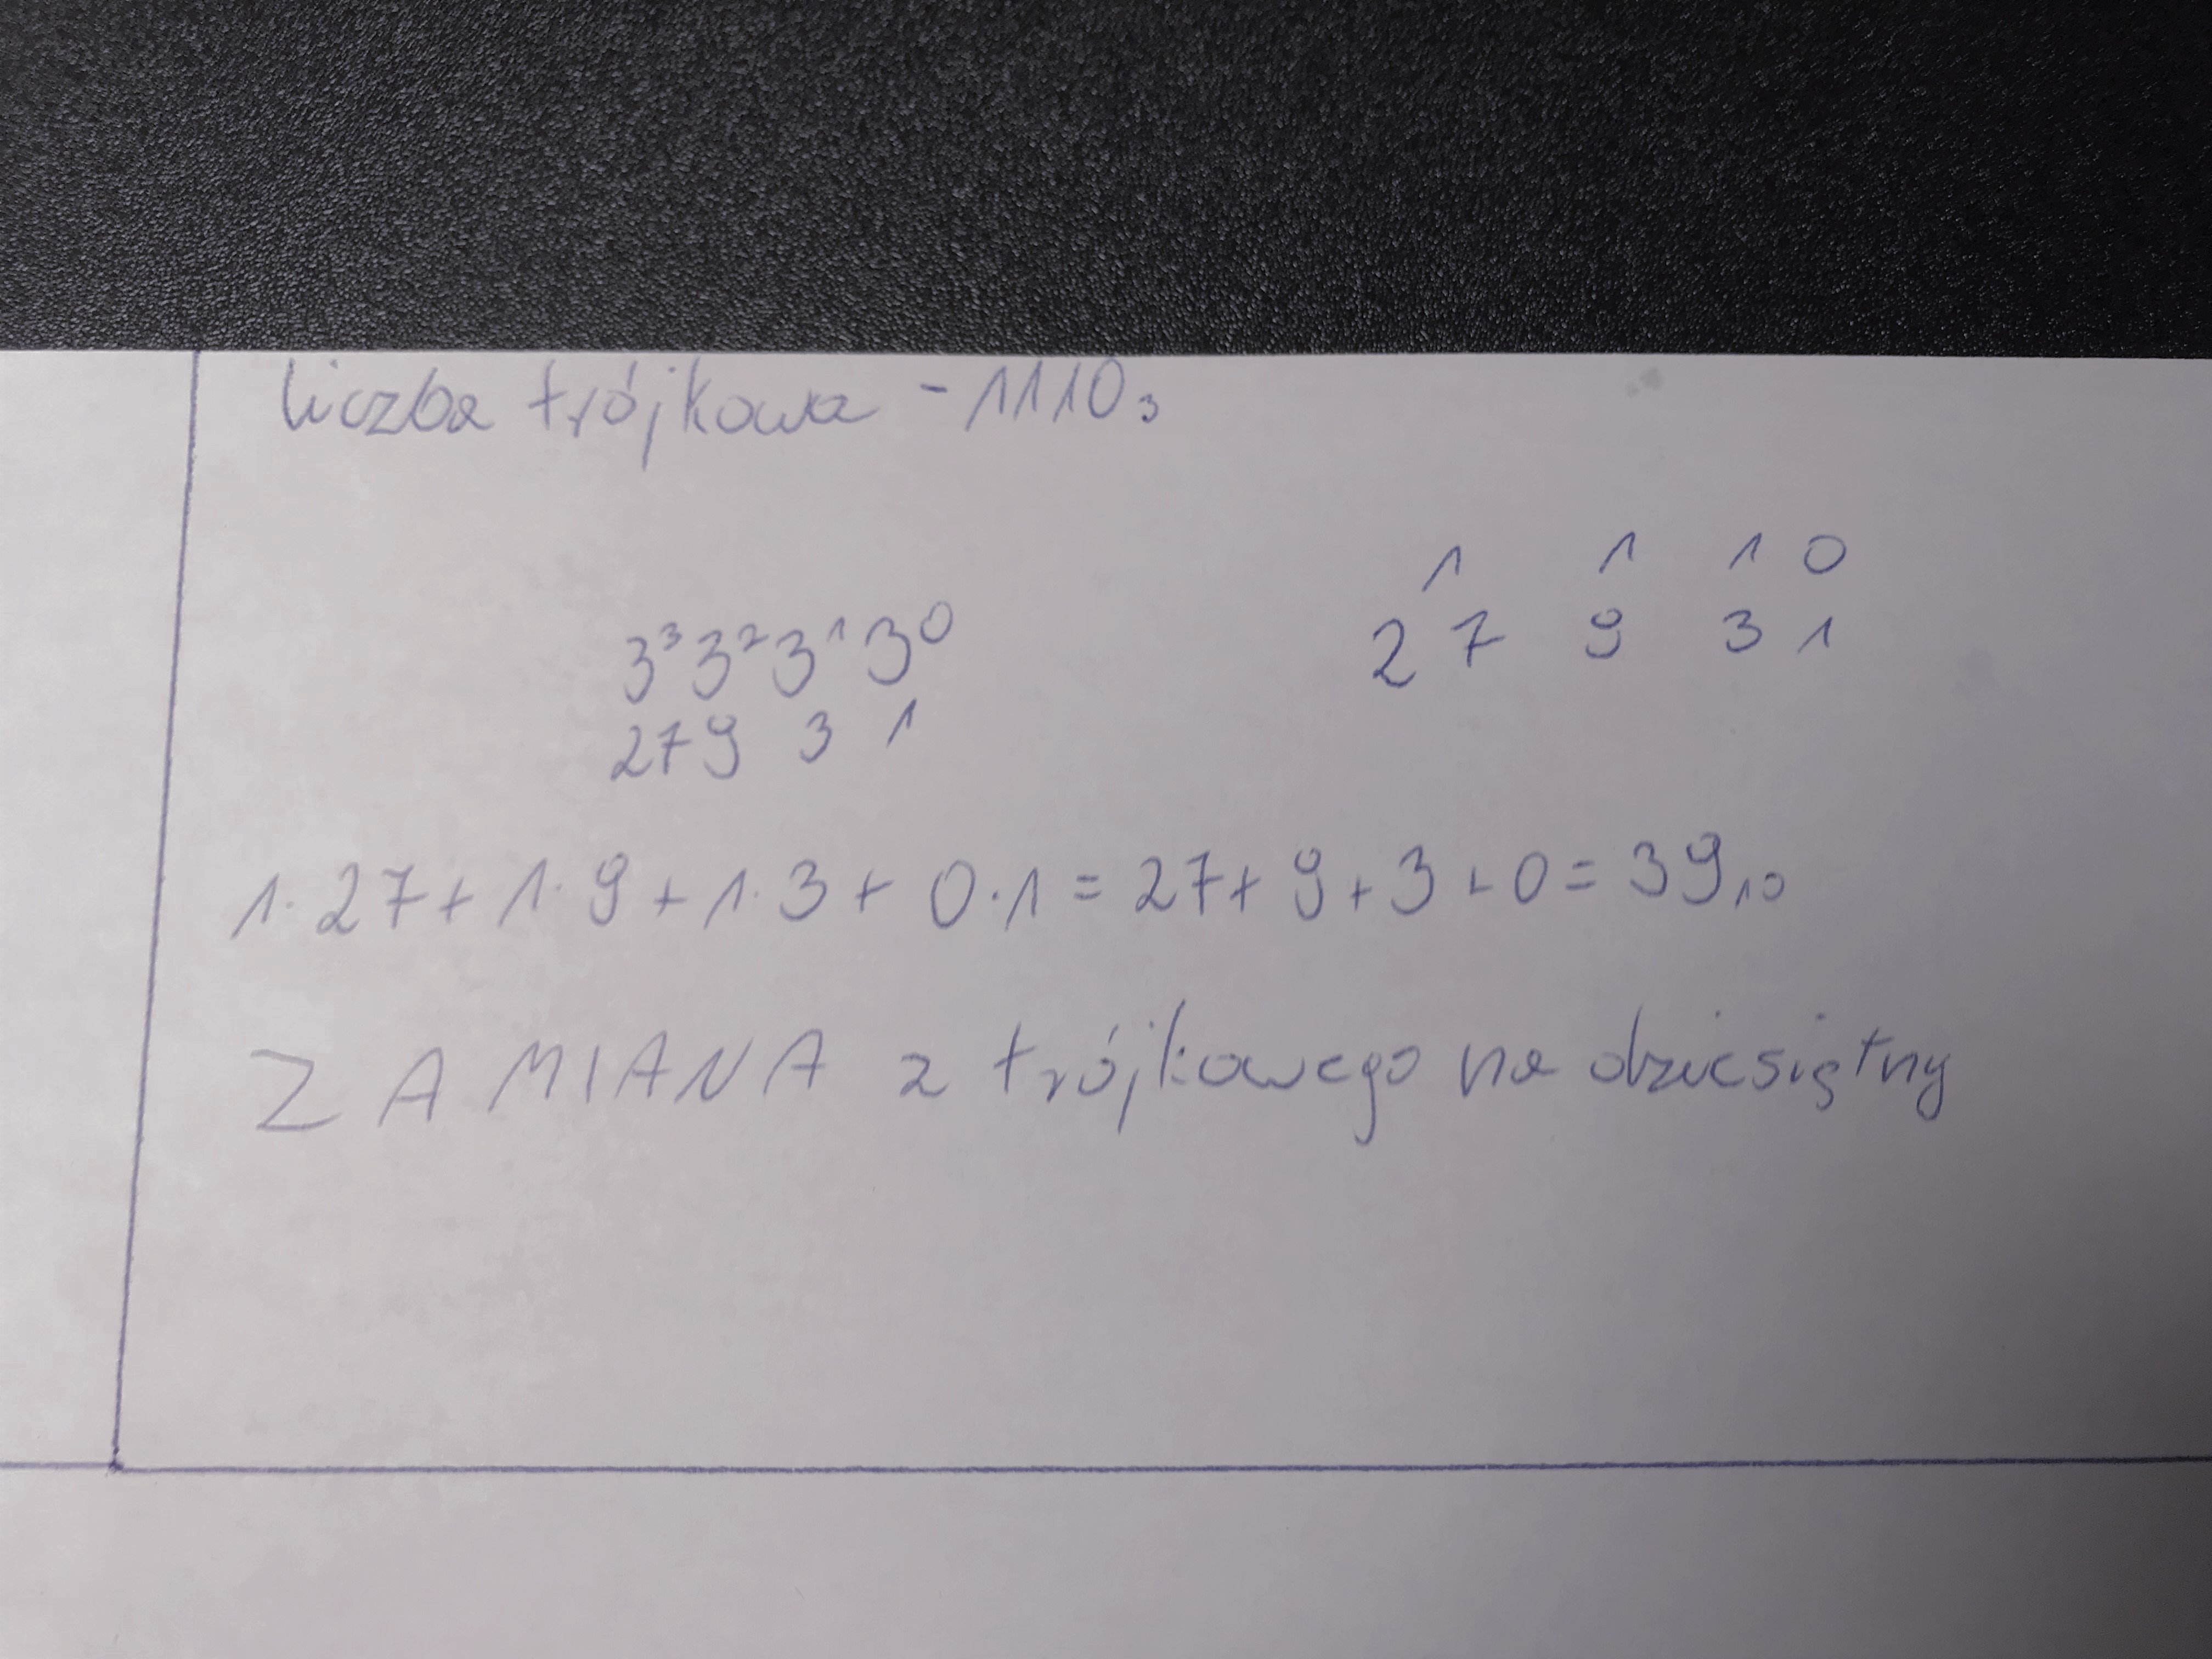 liczba trójkowa - 1110₃
1 1 1 0
27 9 3 1
3³ 3² 3¹ 3⁰
27 9 3 1
1·27+1·9+1·3+0·1=27+9+3+0=39₁₀
ZAMIANA z trójkowego na dziesiętny